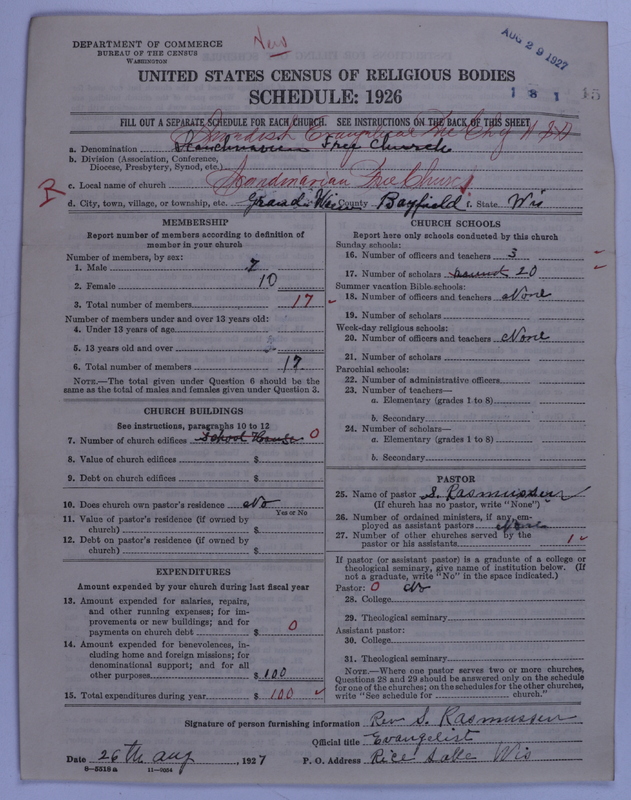 DEPARTMENT OF COMMERCE
BUREAU OF THE CENSUS
WASHINGTON
New
AUG 29 1927
UNITED STATES CENSUS OF RELIGIOUS BODIES
181 15
SCHEDULE: 1926
FILL OUT A SEPARATE SCHEDULE FOR EACH CHURCH. SEE INSTRUCTIONS ON THE BACK OF THIS SHEET
Swedish Evangelical Free Chg
a. Denomination Scandinavien Free Church
b. Division (Association, Conference,
Diocese, Presbytery, Synod, etc.)
R
c. Local name of church Scandinavian Free Church
d. City, town, village, or township, etc. Grand View County Bayfield f. State Wis
MEMBERSHIP
Report number of members according to definition of
member in your church
Number of members, by sex:
1. Male 7
2. Female 10
3. Total number of members 17
Number of members under and over 13 years old:
4. Under 13 years of age
5. 13 years old and over
6. Total number of members 17
NOTE.—The total given under Question 6 should be the
same as the total of males and females given under Question 3.
CHURCH BUILDINGS
See instructions, paragraphs 10 to 12
7. Number of church edifices School House 0
8. Value of church edifices $
9. Debt on church edifices $
10. Does church own pastor's residence No
Yes or No
11. Value of pastor's residence (if owned by
church) $
12. Debt on pastor's residence (if owned by
church) $
EXPENDITURES
Amount expended by your church during last fiscal year
13. Amount expended for salaries, repairs,
and other running expenses; for im-
provements or new buildings; and for
payments on church debt $ 0
14. Amount expended for benevolences, in-
cluding home and foreign missions; for
denominational support; and for all
other purposes $ 100
15. Total expenditures during year $ 100
CHURCH SCHOOLS
Report here only schools conducted by this church
Sunday schools:
16. Number of officers and teachers 3
17. Number of scholars 20
Summer vacation Bible schools:
18. Number of officers and teachers None
19. Number of scholars
Week-day religious schools:
20. Number of officers and teachers None
21. Number of scholars
Parochial schools:
22. Number of administrative officers
23. Number of teachers—
a. Elementary (grades 1 to 8)
b. Secondary
24. Number of scholars—
a. Elementary (grades 1 to 8)
b. Secondary
PASTOR
25. Name of pastor S. Rasmussen
(If church has no pastor, write "None")
26. Number of ordained ministers, if any, em-
ployed as assistant pastors None
27. Number of other churches served by the
pastor or his assistants 1
If pastor (or assistant pastor) is a graduate of a college or
theological seminary, give name of institution below. (If
not a graduate, write "No" in the space indicated.)
Pastor: 0 No
28. College
29. Theological seminary
Assistant pastor:
30. College
31. Theological seminary
NOTE.—Where one pastor serves two or more churches,
Questions 28 and 29 should be answered only on the schedule
for one of the churches; on the schedules for the other churches,
write "See schedule for church."
Signature of person furnishing information Rev S. Rasmussen
Official title Evangelist
Date 26th aug, 1927 P. O. Address Rice Lake Wis
8—5518a 11—9064